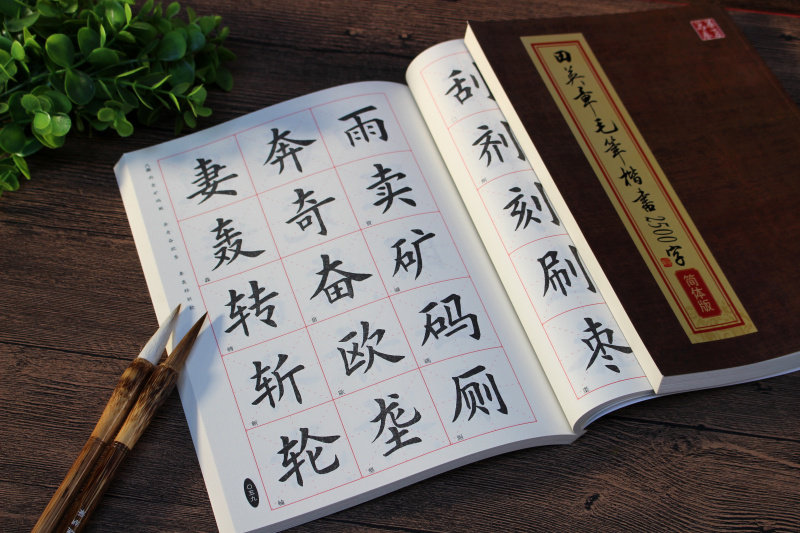 田英章毛筆楷書2500字
简体版
刮剂刻刷枣
雨卖矿码厕
奔奇奋欧垄
妻轰转斩轮
〇五九